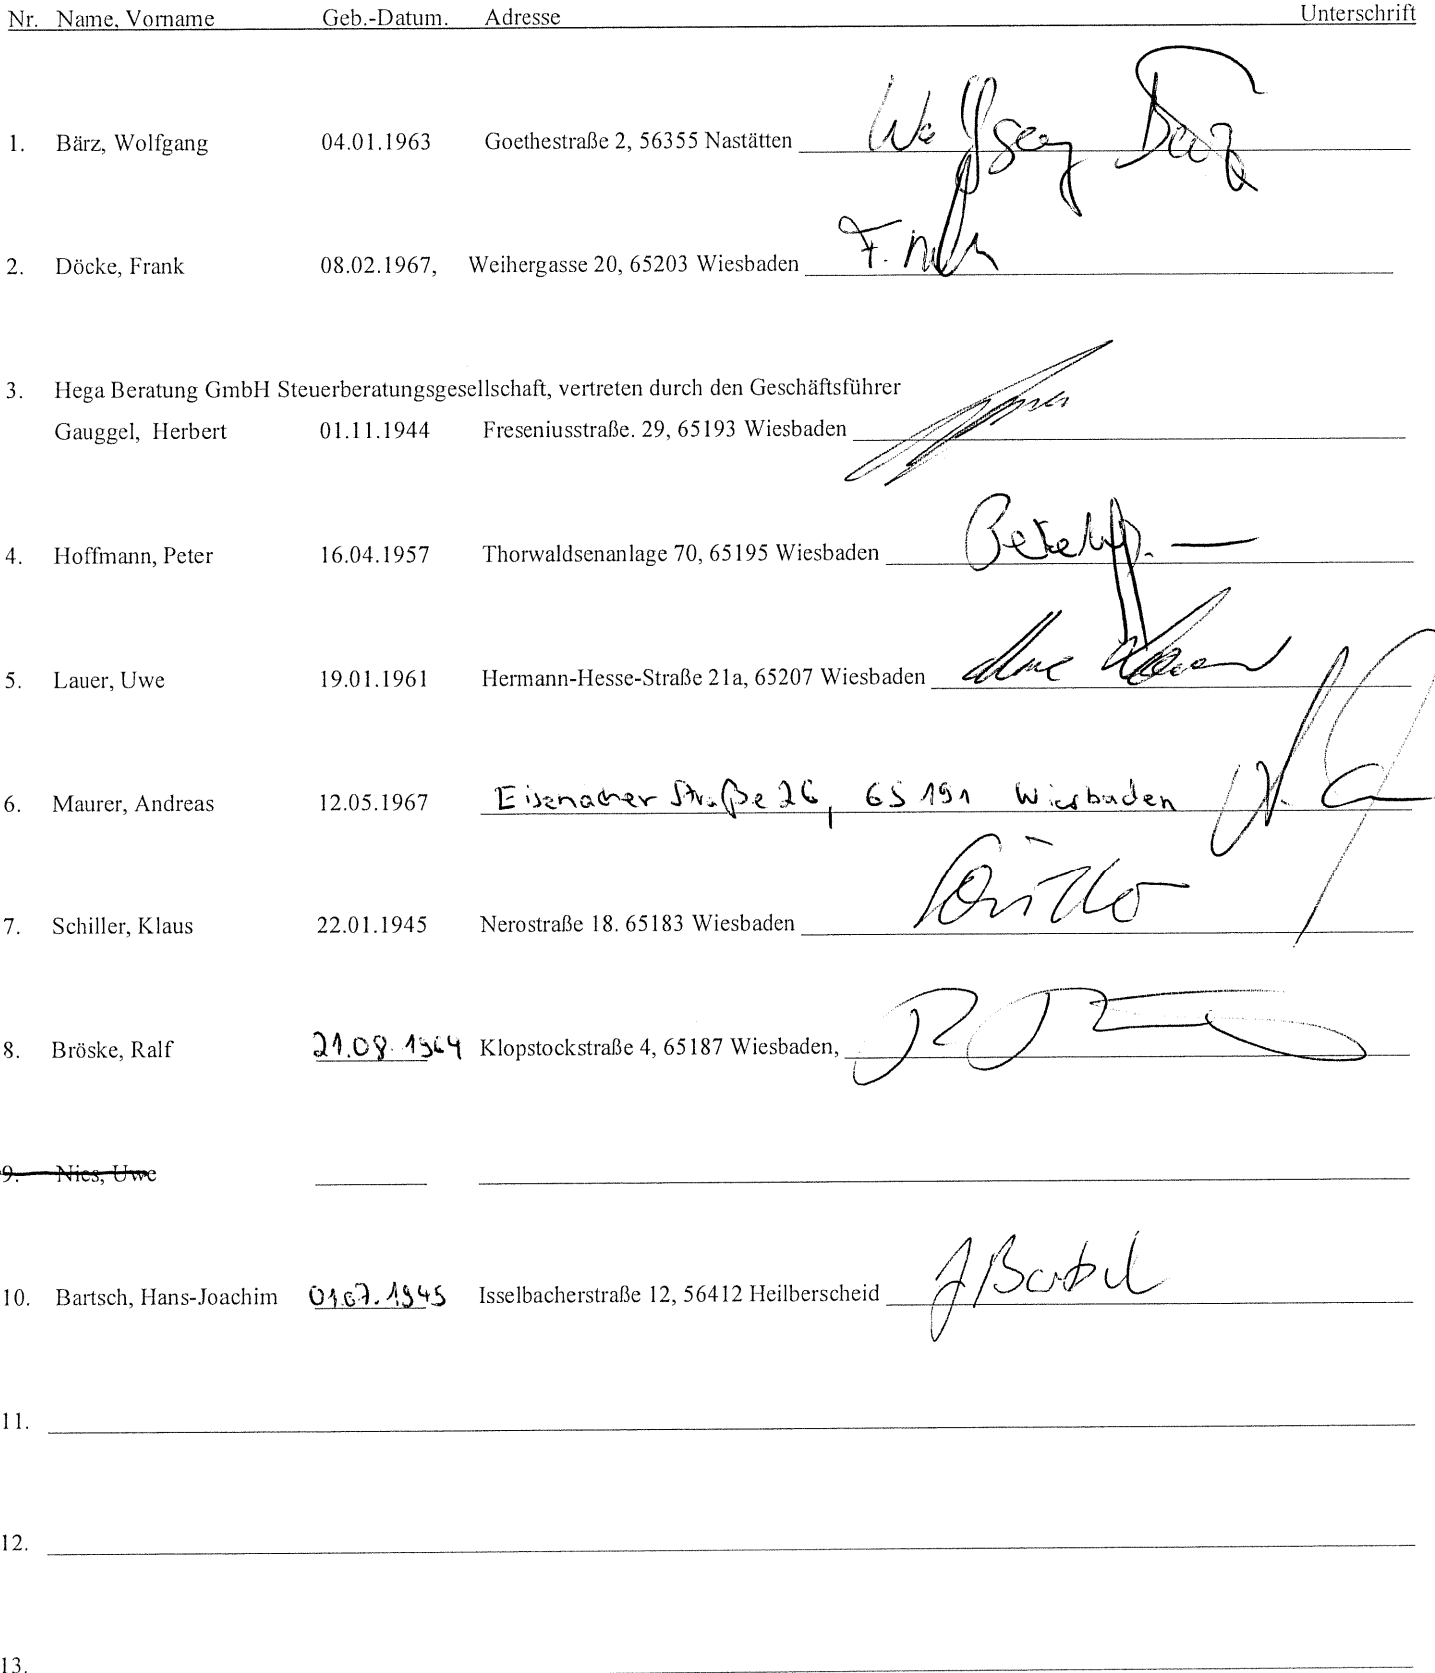 Nr. Name, Vorname Geb.-Datum. Adresse Unterschrift
1. Bärz, Wolfgang 04.01.1963 Goethestraße 2, 56355 Nastätten Wolfgang Bärz
2. Döcke, Frank 08.02.1967, Weihergasse 20, 65203 Wiesbaden F.
3. Hega Beratung GmbH Steuerberatungsgesellschaft, vertreten durch den Geschäftsführer
Gauggel, Herbert 01.11.1944 Freseniusstraße. 29, 65193 Wiesbaden
4. Hoffmann, Peter 16.04.1957 Thorwaldsenanlage 70, 65195 Wiesbaden
5. Lauer, Uwe 19.01.1961 Hermann-Hesse-Straße 21a, 65207 Wiesbaden
6. Maurer, Andreas 12.05.1967 Eisenacher Straße 26, 65191 Wiesbaden
7. Schiller, Klaus 22.01.1945 Nerostraße 18. 65183 Wiesbaden Schiller
8. Bröske, Ralf 21.08.1964 Klopstockstraße 4, 65187 Wiesbaden,
9. Nies, Uwe
10. Bartsch, Hans-Joachim 01.07.1945 Isselbacherstraße 12, 56412 Heilberscheid
11.
12.
13.